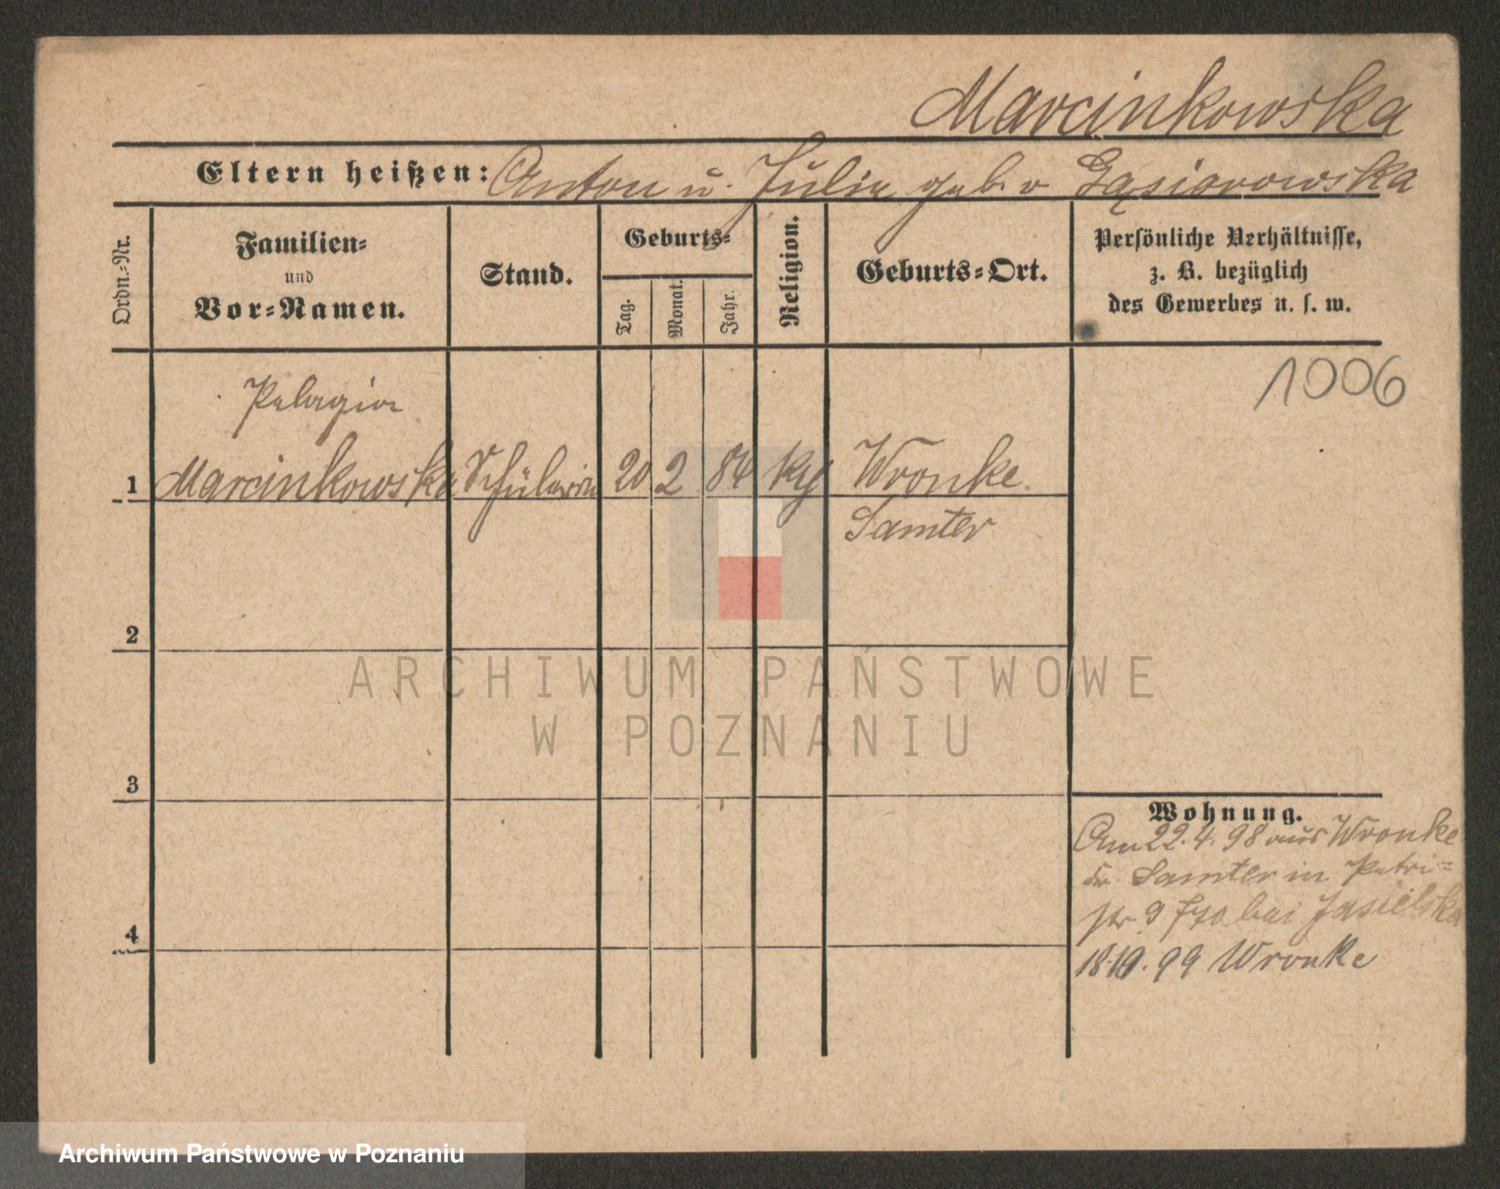 Marcinkowska
Eltern heißen: Anton u. Julia geb. v Gąsiorowska
Ordn.-Nr.
Familien-
und
Vor-Namen.
Stand.
Geburts-
Tag.
Monat.
Jahr.
Religion.
Geburts-Ort.
Persönliche Verhältnisse,
z. B. bezüglich
des Gewerbes u. s. w.
1006
Pelagia
1 Marcinkowska Schülerin 20 2 84 Wronke.
Samter
2
ARCHIWUM PAŃSTWOWE
W POZNANIU
3
Wohnung.
Am 22.4.98 aus Wronke
Kr. Samter in Petri-
str 9 bei Jasielska
18.10.99 Wronke
4
Archiwum Państwowe w Poznaniu